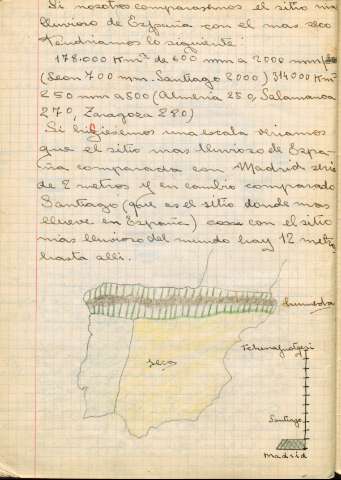 Si nosotros comparasemos el sitio mas
lluvioso de España con el mas seco
tendriamos lo siguiente:
178.000 Km² de 600 mm a 2000 mm
(Leon 700 mm. Santiago 2000) 314000 Km²
250 mm a 500 (Almeria 250, Salamanca
270, Zaragoza 280)
Si hiciesemos una escala veriamos
que el sitio mas lluvioso de Espa-
ña comparada con Madrid seria
de 2 metros y en cambio comparado
Santiago (que es el sitio donde mas
llueve en España) con el sitio
mas lluvioso del mundo hay 12 metros
hasta alli.
humeda
Tchenapungi
seca
Santiago
Madrid